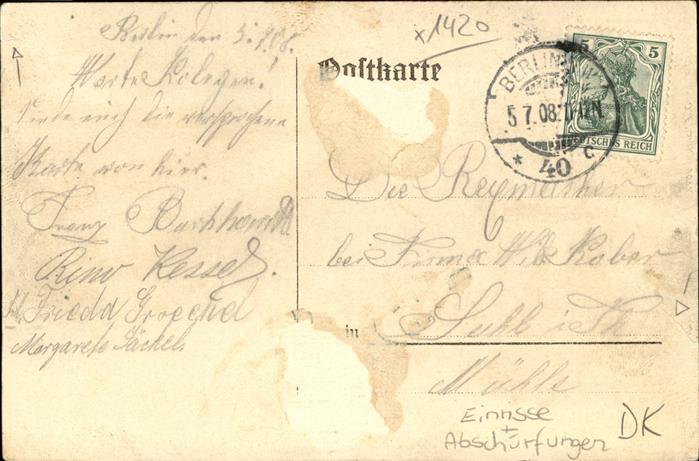 Berlin den 5.7.08.
Werte Kolegen!
Sende euch die versprochene
Karte von hier.
Franz
Rino Kessel.
Friedd
Margarete Jäckel
x1420
Postkarte
5 5
DEUTSCHES REICH
BERLIN N.W.
5 7.08. 11-12N.
* 40 c
Die
bei Firma Wilh. Kober
in Suhl i. Th.
Mühle
Einrisse
+
Abschürfungen
DK